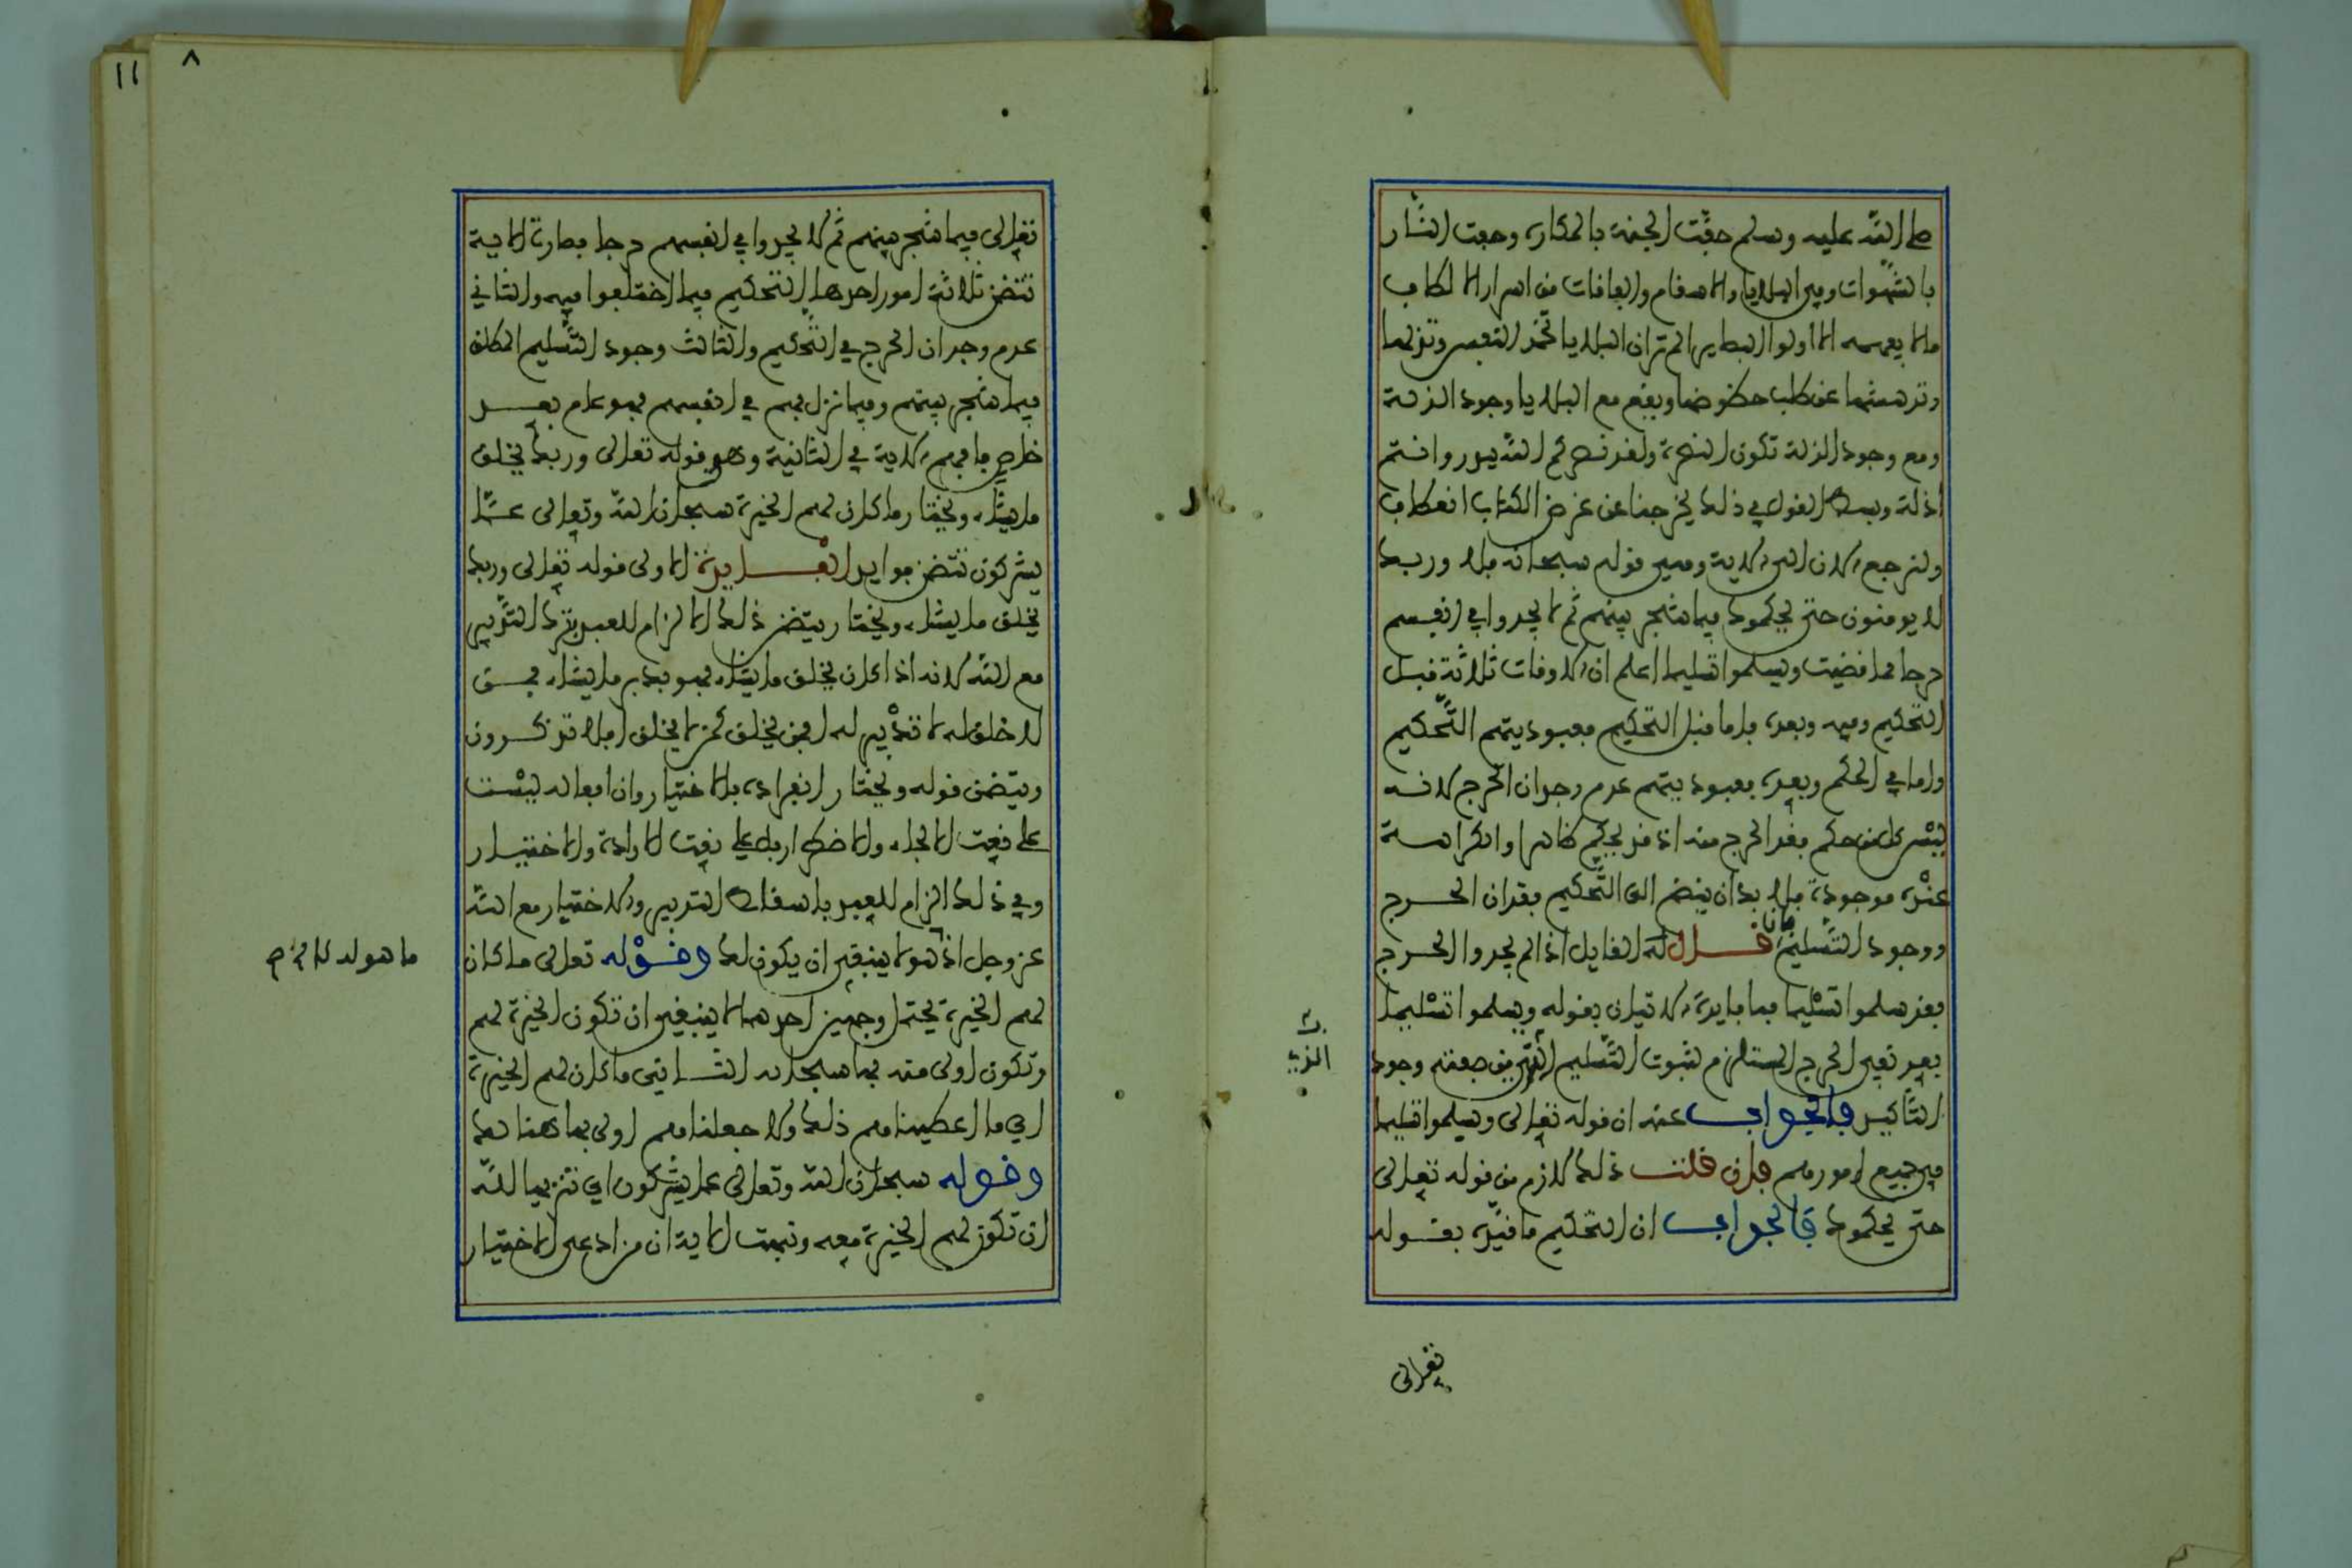 صلى الله عليه وسلم حفّت الجنة بالمكاره وحفت النّار
بالشّهوات وفي البلايا والاسقام والفاقات من اسرار الالطاف
ما لا يفهمه الا اولوا البصاير الم تر ان البلايا تخمد النفس وتذلها
وتدهشها عن طلب حظوظها ويقع مع البلايا وجود الذلة
ومع وجود الذلة تكون النصرة ولقد نصركم الله ببدر وانتم
اذلة وبسط القول في ذلك يخرجنا عن غرض الكتاب انعطاف
ولنرجع الان الى الاية وهي قوله سبحانه فلا وربك
لا يومنون حتى يحكموك فيما شجر بينهم ثم لا يجدوا في انفسهم
حرجا مما قضيت ويسلموا تسليما اعلم ان الاوقات ثلاثة قبل
التحكيم وفيه وبعده فاما قبل التحكيم فعبوديتهم التّحكيم
واما في الحكم وبعده فعبوديتهم عدم وجدان الحرج لانه
ليْس كل من حكم فقد الحرج منه اذ قد يحكم ظاهرا والكراهة
عنْده موجودة فلا بد ان ينضم الى التّحكيم فقدان الحرج
ووجود التّسليم فان قال له القايل اذا لم يجدوا الحرج
فقد سلموا تسْليما فما فايدة الاتيان بقوله ويسلموا تسْليما
بعد نفي الحرج المستلزم لثبوت التّسليم الّذي من صفته وجود
التّاكيد فالجواب عنه ان قوله تعالى ويسلموا تسليما
في جميع امورهم فان قلت ذلك لازم من قوله تعالى
حتى يحكموك فالجواب ان التحكيم ما قيّده بقوله
الذي
تعالى
١١
٨
تعالى فيما شجر بينهم ثم لا يجدوا في انفسهم حرجا فصارت الاية
تتضمن ثلاثة امور احدها التّحكيم فيما اختلفوا فيه والثاني
عدم وجدان الحرج في التّحكيم والثالث وجود التّسليم المطلق
فيما شجر بينهم وفيما نزل بهم في انفسهم فهو عام بعد
خاص فافهم الاية الثانية وهو قوله تعالى وربك يخلق
ما يشاء ويختار ما كان لهم الخيرة سبحان الله وتعالى عمّا
يشركون تتضمن فوايد الفايدة الاولى قوله تعالى وربك
يخلق ما يشاء ويختار يتضمن ذلك الالزام للعبد بترك التّدبير
مع الله لانه اذا كان يخلق ما يشاء فهو يدبر ما يشاء فمن
لا خلق له لا تدْبير له افمن يخلق كمن لا يخلق افلا تذكرون
ويتضمن قوله ويختار انفراده بالاختيار وان افعاله ليْست
على نعت الالجاء والاضطرار بل على نعت الارادة والاختيار
وفي ذلك الزام للعبد باسقاط التدبير والاختيار مع الله
عز وجل اذ هو لا ينبغي ان يكون لك وقوْله تعالى ما كان
ما هو له
لهم الخيرة يحتمل وجهين احدهما لا ينبغي ان تكون الخيرة لهم
وتكون اولى منه بها سبحانه الثاني ما كان لهم الخيرة
اي ما اعطيناهم ذلك ولا جعلناهم اولى بما هنالك
وقوله سبحان الله وتعالى عما يشركون اي تنزيها للّه
ان تكون لهم الخيرة معه وبينت الاية ان من ادعى الاختيار